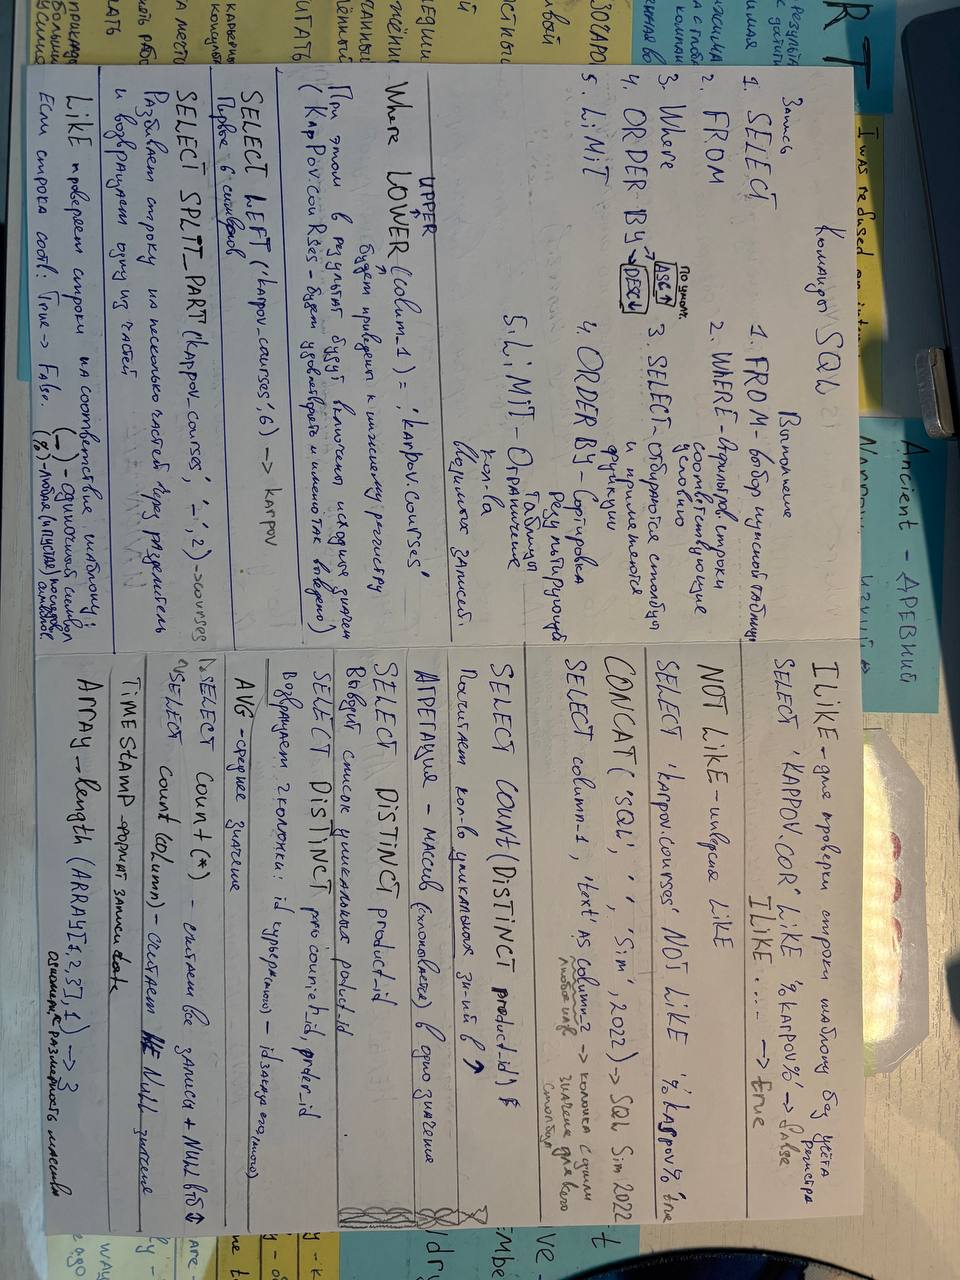 Команды SQL
Запись
1. SELECT
2. FROM
3. Where
4. ORDER BY
ASC↑ по умолч.
DESC↓
5. LIMIT
Выполнение
1. FROM - выбор нужной таблицы
2. WHERE - Фильтров. строки
соответствующие
условию
3. SELECT - отбираются столбцы
и применяются
функции
4. ORDER BY - Сортировка
результирующей
таблицы
5. LIMIT - Ограничение
кол-ва
записей.
UPPER
Where LOWER (colum_1) = 'karpov.courses'
будет приведены к нижнему регистру
При этом в результат будут включены исходные значен
SELECT LEFT ('karpov.courses', 6) -> karpov
Первые 6 символов
SELECT SPLIT_PART ('karpov_courses', '_', 2) -> courses
Разбивает строку на несколько частей через разделитель
и возвращает одну из частей
LIKE проверяет строки на соответствие шаблону:
Если строка соотв: True -> False.
(_) - одиночный символ
(%) - любая (и пустая) последов. символов
ILIKE - для проверки строки шаблону без учёта
регистра
SELECT 'KAPPOV.COR' LIKE '%karpov%' -> false
ILIKE .... -> true
NOT LIKE - инверсия LIKE
SELECT 'karpov.courses' NOT LIKE '%karpov%' true
CONCAT ('SQL', ' ', 'Sim', 2022) -> SQL Sim 2022
SELECT column_1, 'text' AS column_2 -> колонка с одним
любое имя
значением для всего
столбца
SELECT COUNT(DISTINCT product_id)
Посчитает кол-во уникальных зн-ий в ↑
Агрегация - массив (схлоповается) в одно значение
SELECT DISTINCT product_id
Выводит список уникальных product_id
SELECT DISTINCT courier_id, order_id
AVG - среднее значение
SELECT count (*) - считаем все записи + NULL
SELECT count (column) - считаем НЕ NULL значение
TIMESTAMP - формат записи date
ARRAY - length (ARRAY[1,2,3], 1) -> 3
размерность массива
I was refused an
Ancient - ДРЕВНИЙ